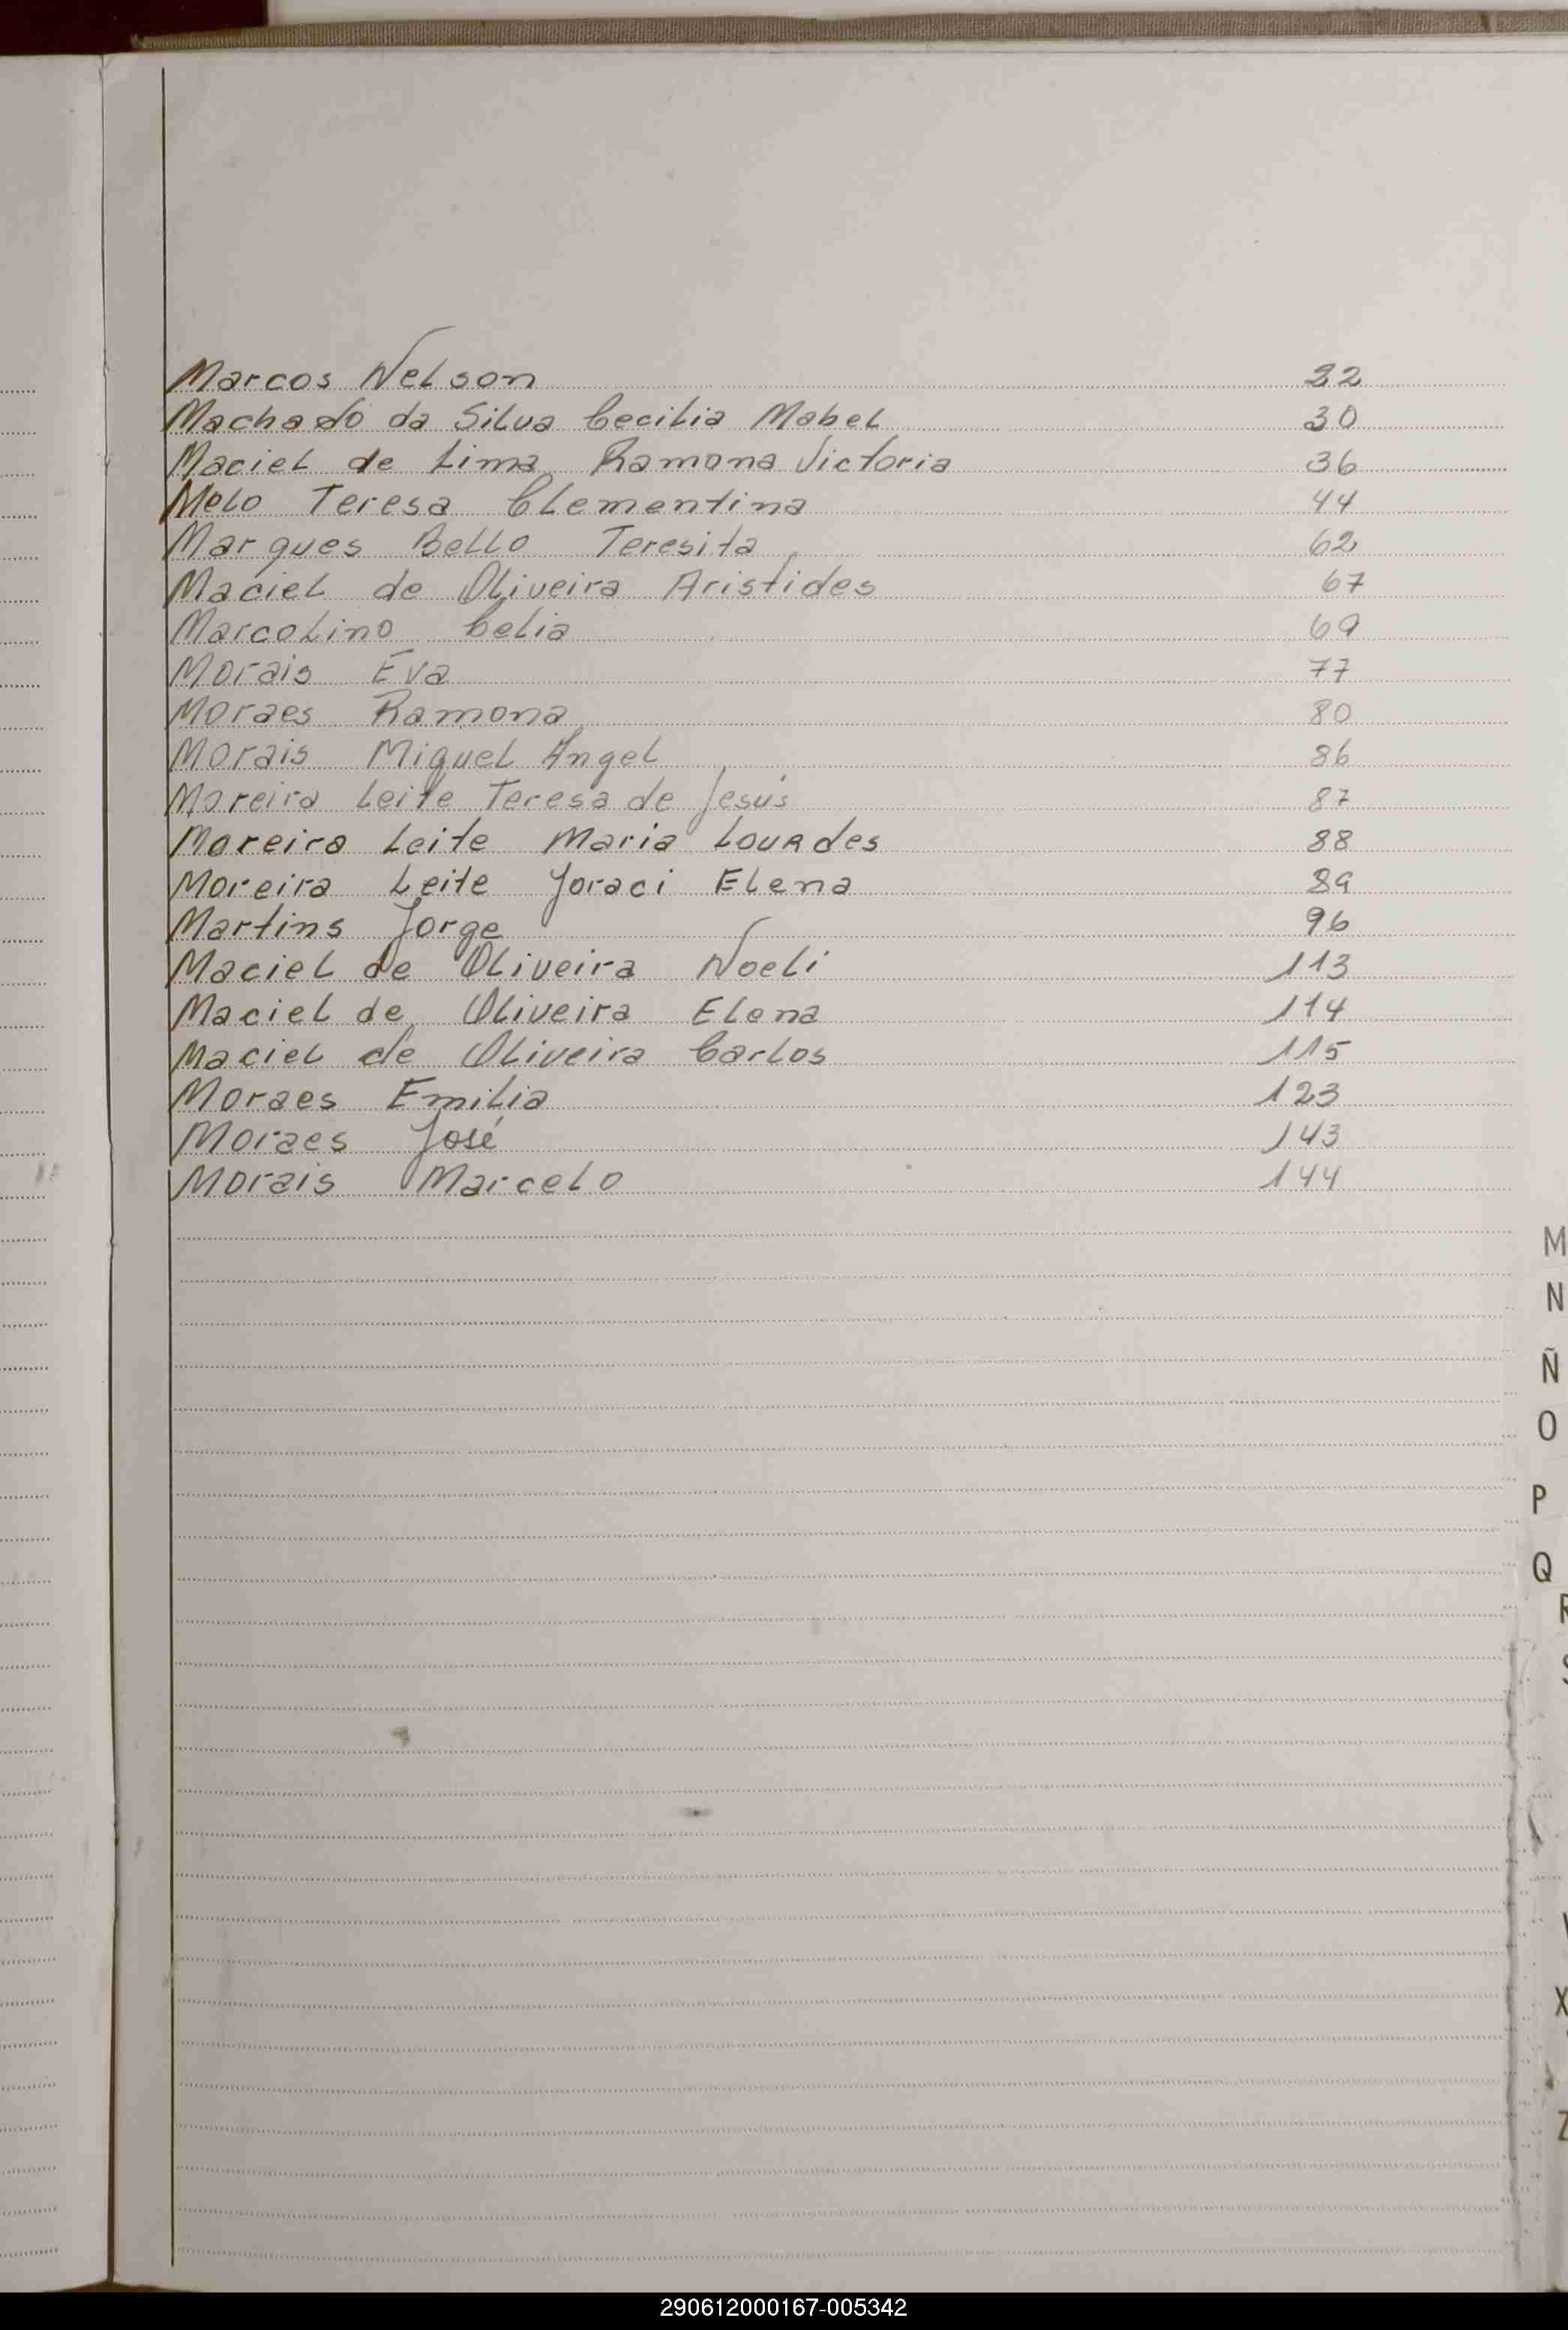 Marcos Nelson 22
Machado da Silva Cecilia Mabel 30
Maciel de Lima Ramona Victoria 36
Melo Teresa Clementina 44
Marques Bello Teresita 62
Maciel de Oliveira Aristides 67
Marcolino Celia 69
Morais Eva 77
Moraes Ramona 80
Morais Miguel Angel 86
Moreira Leite Teresa de Jesús 87
Moreira Leite Maria Lourdes 88
Moreira Leite Joraci Elena 89
Martins Jorge 96
Maciel de Oliveira Noeli 113
Maciel de Oliveira Elena 114
Maciel de Oliveira Carlos 115
Moraes Emilia 123
Moraes José 143
Morais Marcelo 144
M
N
Ñ
O
P
Q
R
S
X
Z
290612000167-005342